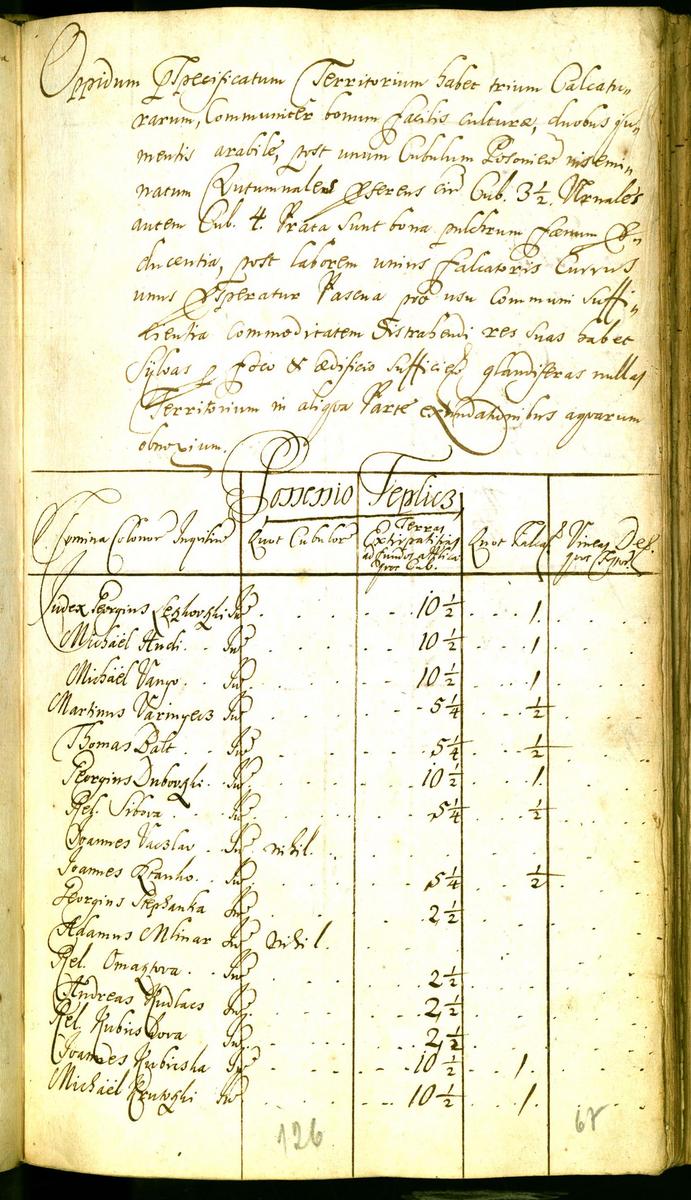 Oppidum Specificatum Territorium habet trium Calcatu„
rarum, Communiter bonum facilis culturæ, duobus ju„
mentis arabile, post unum Cubulum Posonien insemi„
natum Autumnales referens cir Cub. 3 1/2. Vernales
autem Cub. 4. Prata sunt bona pulchrum fænum p„
ducentia, post laborem unius falcatoris Currus
unus Speratur Pascua pro usu Communi suffi„
cientia Commoditatem distrahendi res suas habet
Sylvas p foco & ædificio sufficies glandiferas nullas
Territorium in aliqva Parte exundationibus aqvarum
obnoxium.
Possessio Teplicz
Nomina Colonor Inqvilin Quot Cubulor Terras Extirpatitias ad fundos applica quot Cub. Quot Falcas Vineas Des.
Judex Georgius Inq 10 1/2 1.
Michaël Andi Inq 10 1/2 1
Michaël Vango Inq 10 1/2 1
Martinus Varinyecz Inq 5 1/4 1/2
Thomas Balt Inq 5 1/4 1/2
Georgius Dubovszhi Inq 10 1/2 1.
Rel. Sibova Inq 5 1/4 1/2
Joannes Vaczlav Inq nihil
Joannes Inq 5 1/4 1/2
Georgius Stephanka Inq 2 1/2
Adamus Mlinar Inq nihil.
Rel. Inq 2 1/2
Andreas Kudlacs Inq 2 1/2
Rel. Kubris kova Inq 2 1/2
Joannes Kubriska Inq 10 1/2 1.
Michaël Inq 10 1/2 1.
126 68